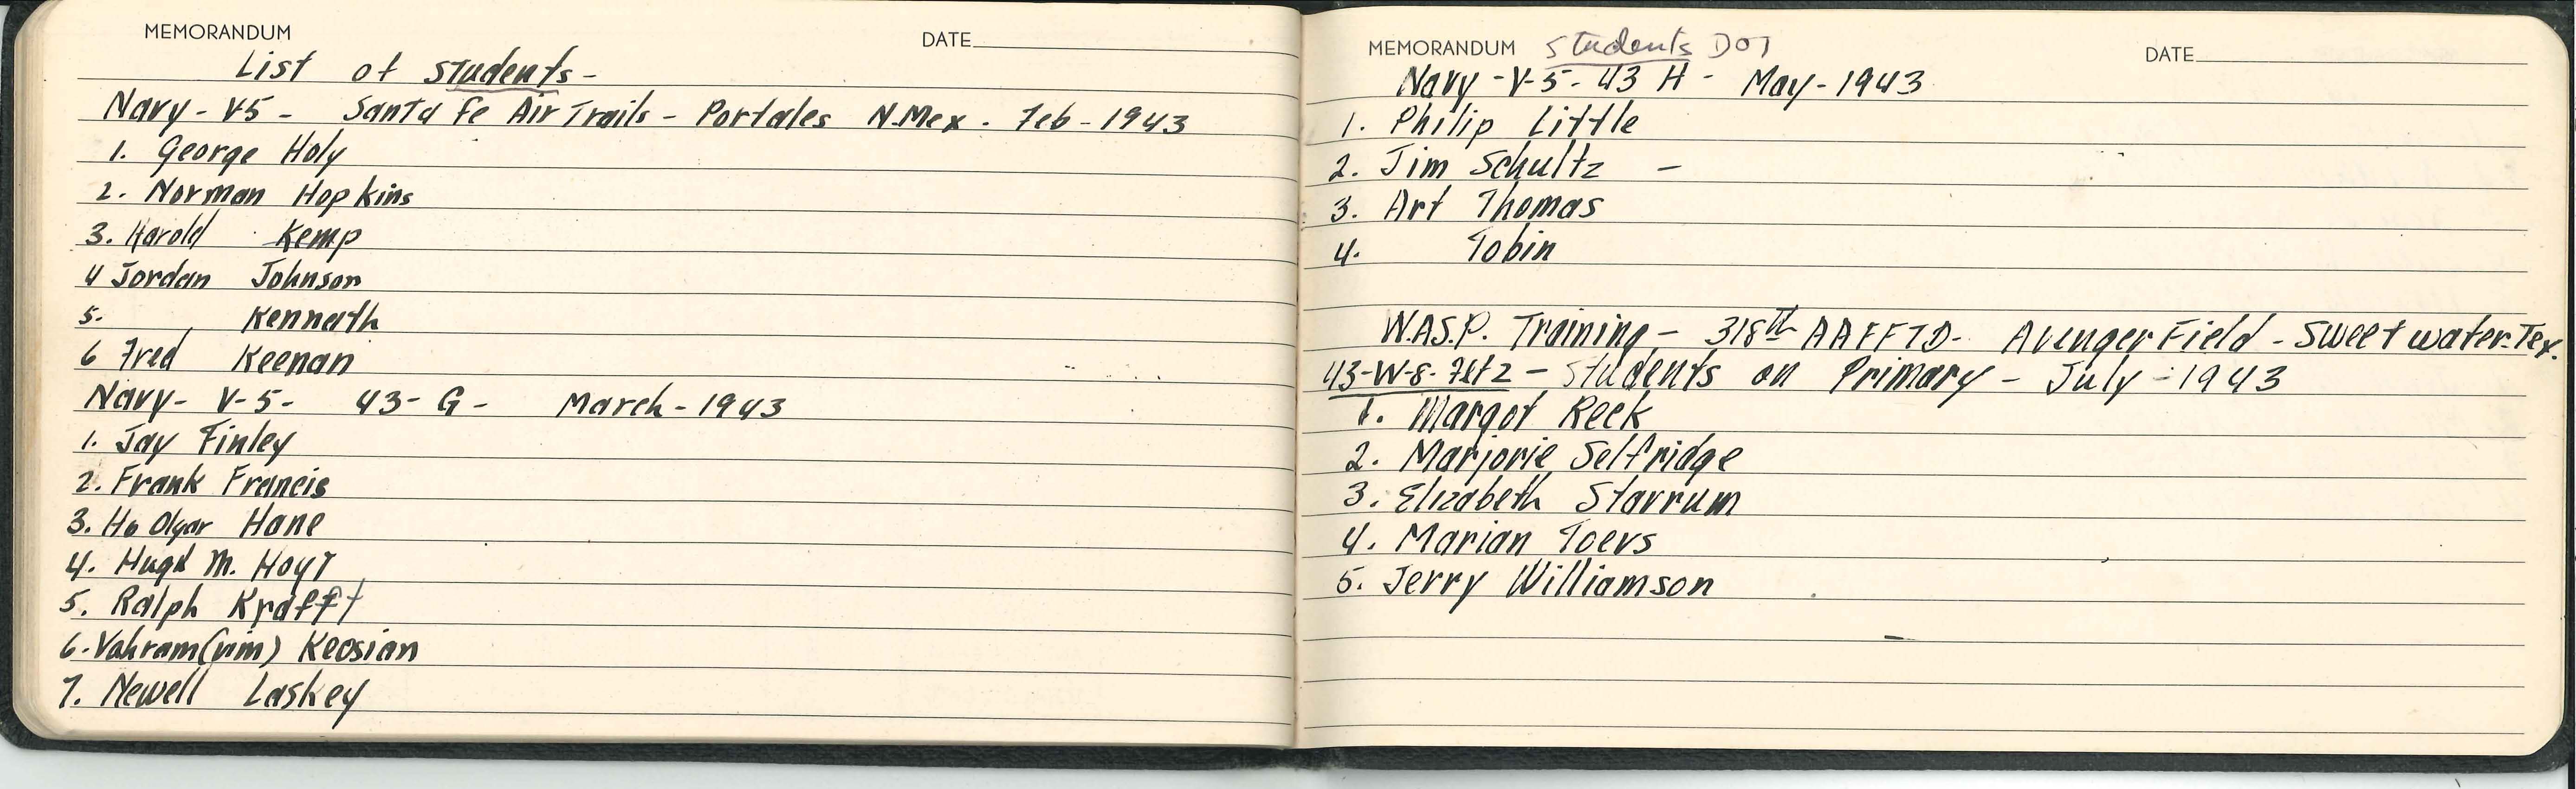 MEMORANDUM DATE
List of students-
Navy- V5 - Santa Fe Air Trails - Portales N.Mex. Feb-1943
1. George Holy
2. Norman Hopkins
3. Harold Kemp
4 Jordan Johnson
5. Kennath
6 Fred Keenan
Navy- V-5- 43- G- March-1943
1. Jay Finley
2. Frank Francis
3. Ho Olgar Hane
4. Hugh M. Hoyt
5. Ralph Krafft
6. Vahram (nim) Keosian
7. Newell Laskey
MEMORANDUM Students DOT DATE
Navy-V-5-43 H- May-1943
1. Philip Little
2. Jim Schultz -
3. Art Thomas
4. Tobin
W.A.S.P. Training- 318th AAFFTD- Avenger Field- Sweetwater-Tex.
43-W-8- Flt 2 - Students on Primary - July -1943
1. Margot Reek
2. Marjorie Selfridge
3. Elizabeth Starrum
4. Marian Toevs
5. Jerry Williamson